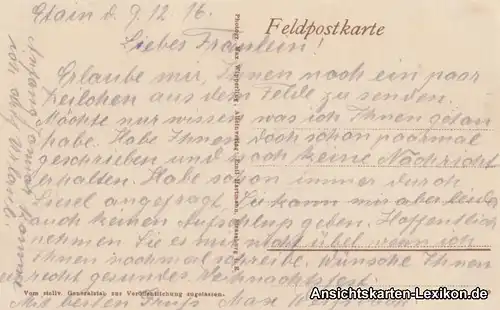 Etain d. 9.12.16.
Feldpostkarte
Liebes Fräulein!
Erlaube mir, Ihnen noch ein paar
Zeilchen aus dem Felde zu senden.
Möchte nur wissen was ich Ihnen getan
habe. Habe Ihnen doch schon paarmal
geschrieben und noch keine Nachricht
erhalten. Habe schon immer durch
Liesel angefragt. Sie kann mir aber leider
auch keinen Aufschluß geben. Hoffentlich
nehmen Sie es mir nicht übel wenn ich
Ihnen nochmal schreibe. Wünsche Ihnen
recht gesundes Weihnachtsfest.
Mit besten Gruß Max
Anfang Januar komme
ich auf Urlaub!
Vom stellv. Generalstab zur Veröffentlichung zugelassen.
Ansichtskarten-Lexikon.de